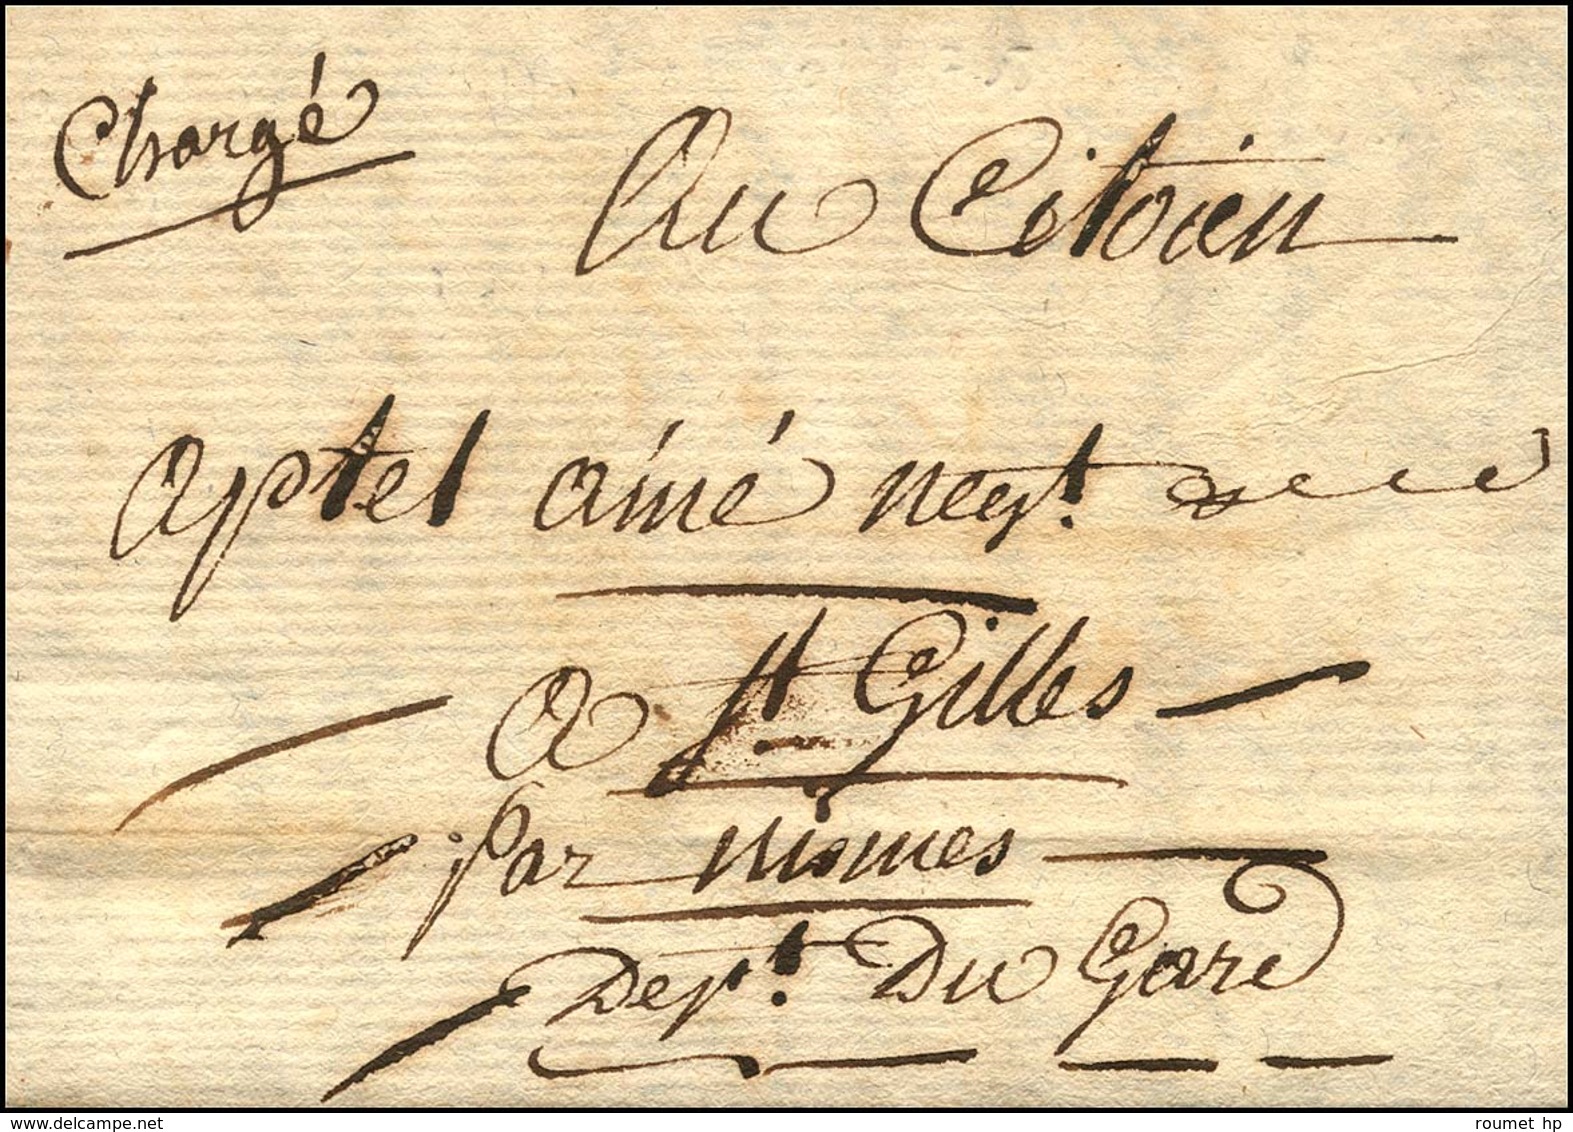 Chargé
Au Citoien
aptel ainé negt.
a St Gilles
par nismes
Dept. Du Gard
roumet hp